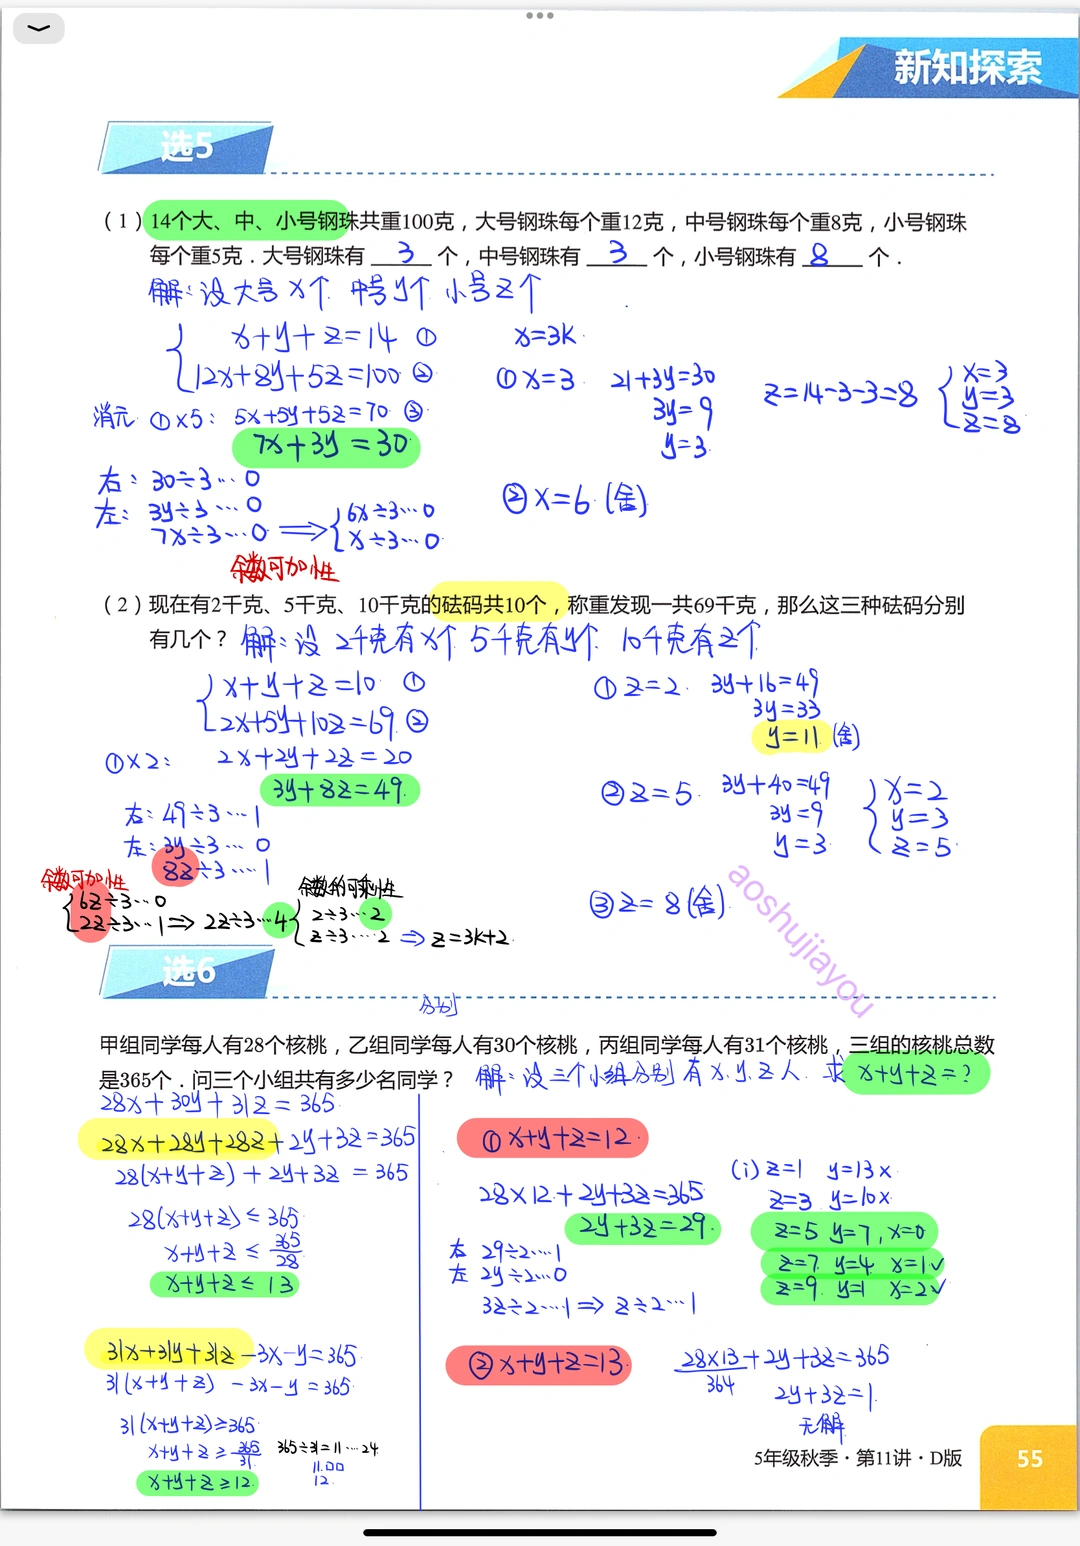 新知探索
选5
（1）14个大、中、小号钢珠共重100克，大号钢珠每个重12克，中号钢珠每个重8克，小号钢珠
每个重5克．大号钢珠有 3 个，中号钢珠有 3 个，小号钢珠有 8 个．
解：设大号x个 中号y个 小号z个
x+y+z=14 ①
12x+8y+5z=100 ②
消元 ①×5：5x+5y+5z=70 ③
7x+3y=30
右：30÷3…0
左：3y÷3…0
7x÷3…0 ⟹ 6x÷3…0
x÷3…0
余数可加性
x=3k
① x=3 21+3y=30
3y=9
y=3
z=14-3-3=8
x=3
y=3
z=8
② x=6 (舍)
（2）现在有2千克、5千克、10千克的砝码共10个，称重发现一共69千克，那么这三种砝码分别
有几个？ 解：设 2千克有x个 5千克有y个 10千克有z个
x+y+z=10 ①
2x+5y+10z=69 ②
①×2： 2x+2y+2z=20
3y+8z=49
右：49÷3…1
左：3y÷3…0
8z÷3…1
余数可加性
6z÷3…0
2z÷3…1 ⇒ 2z÷3…4
余数的可乘性
2÷3…2
z÷3…2 ⇒ z=3k+2
① z=2 3y+16=49
3y=33
y=11 (舍)
② z=5 3y+40=49
3y=9
y=3
x=2
y=3
z=5
③ z=8 (舍)
aoshujiayou
选6
分别
甲组同学每人有28个核桃，乙组同学每人有30个核桃，丙组同学每人有31个核桃，三组的核桃总数
是365个．问三个小组共有多少名同学？ 解：设三个小组分别有x.y.z人. 求 x+y+z=?
28x+30y+31z=365
28x+28y+28z+2y+3z=365
28(x+y+z)+2y+3z=365
28(x+y+z)≤365
x+y+z≤365/28
x+y+z≤13
31x+31y+31z-3x-y=365
31(x+y+z)-3x-y=365
31(x+y+z)≥365
x+y+z≥365/31 365÷31=11…24
11.00
12
x+y+z≥12
① x+y+z=12
28×12+2y+3z=365
2y+3z=29
右 29÷2…1
左 2y÷2…0
3z÷2…1 ⇒ z÷2…1
(i) z=1 y=13 ×
z=3 y=10 ×
z=5 y=7, x=0
z=7 y=4 x=1 ✓
z=9 y=1 x=2 ✓
② x+y+z=13
28×13+2y+3z=365
364
2y+3z=1
无解
5年级秋季·第11讲·D版
55